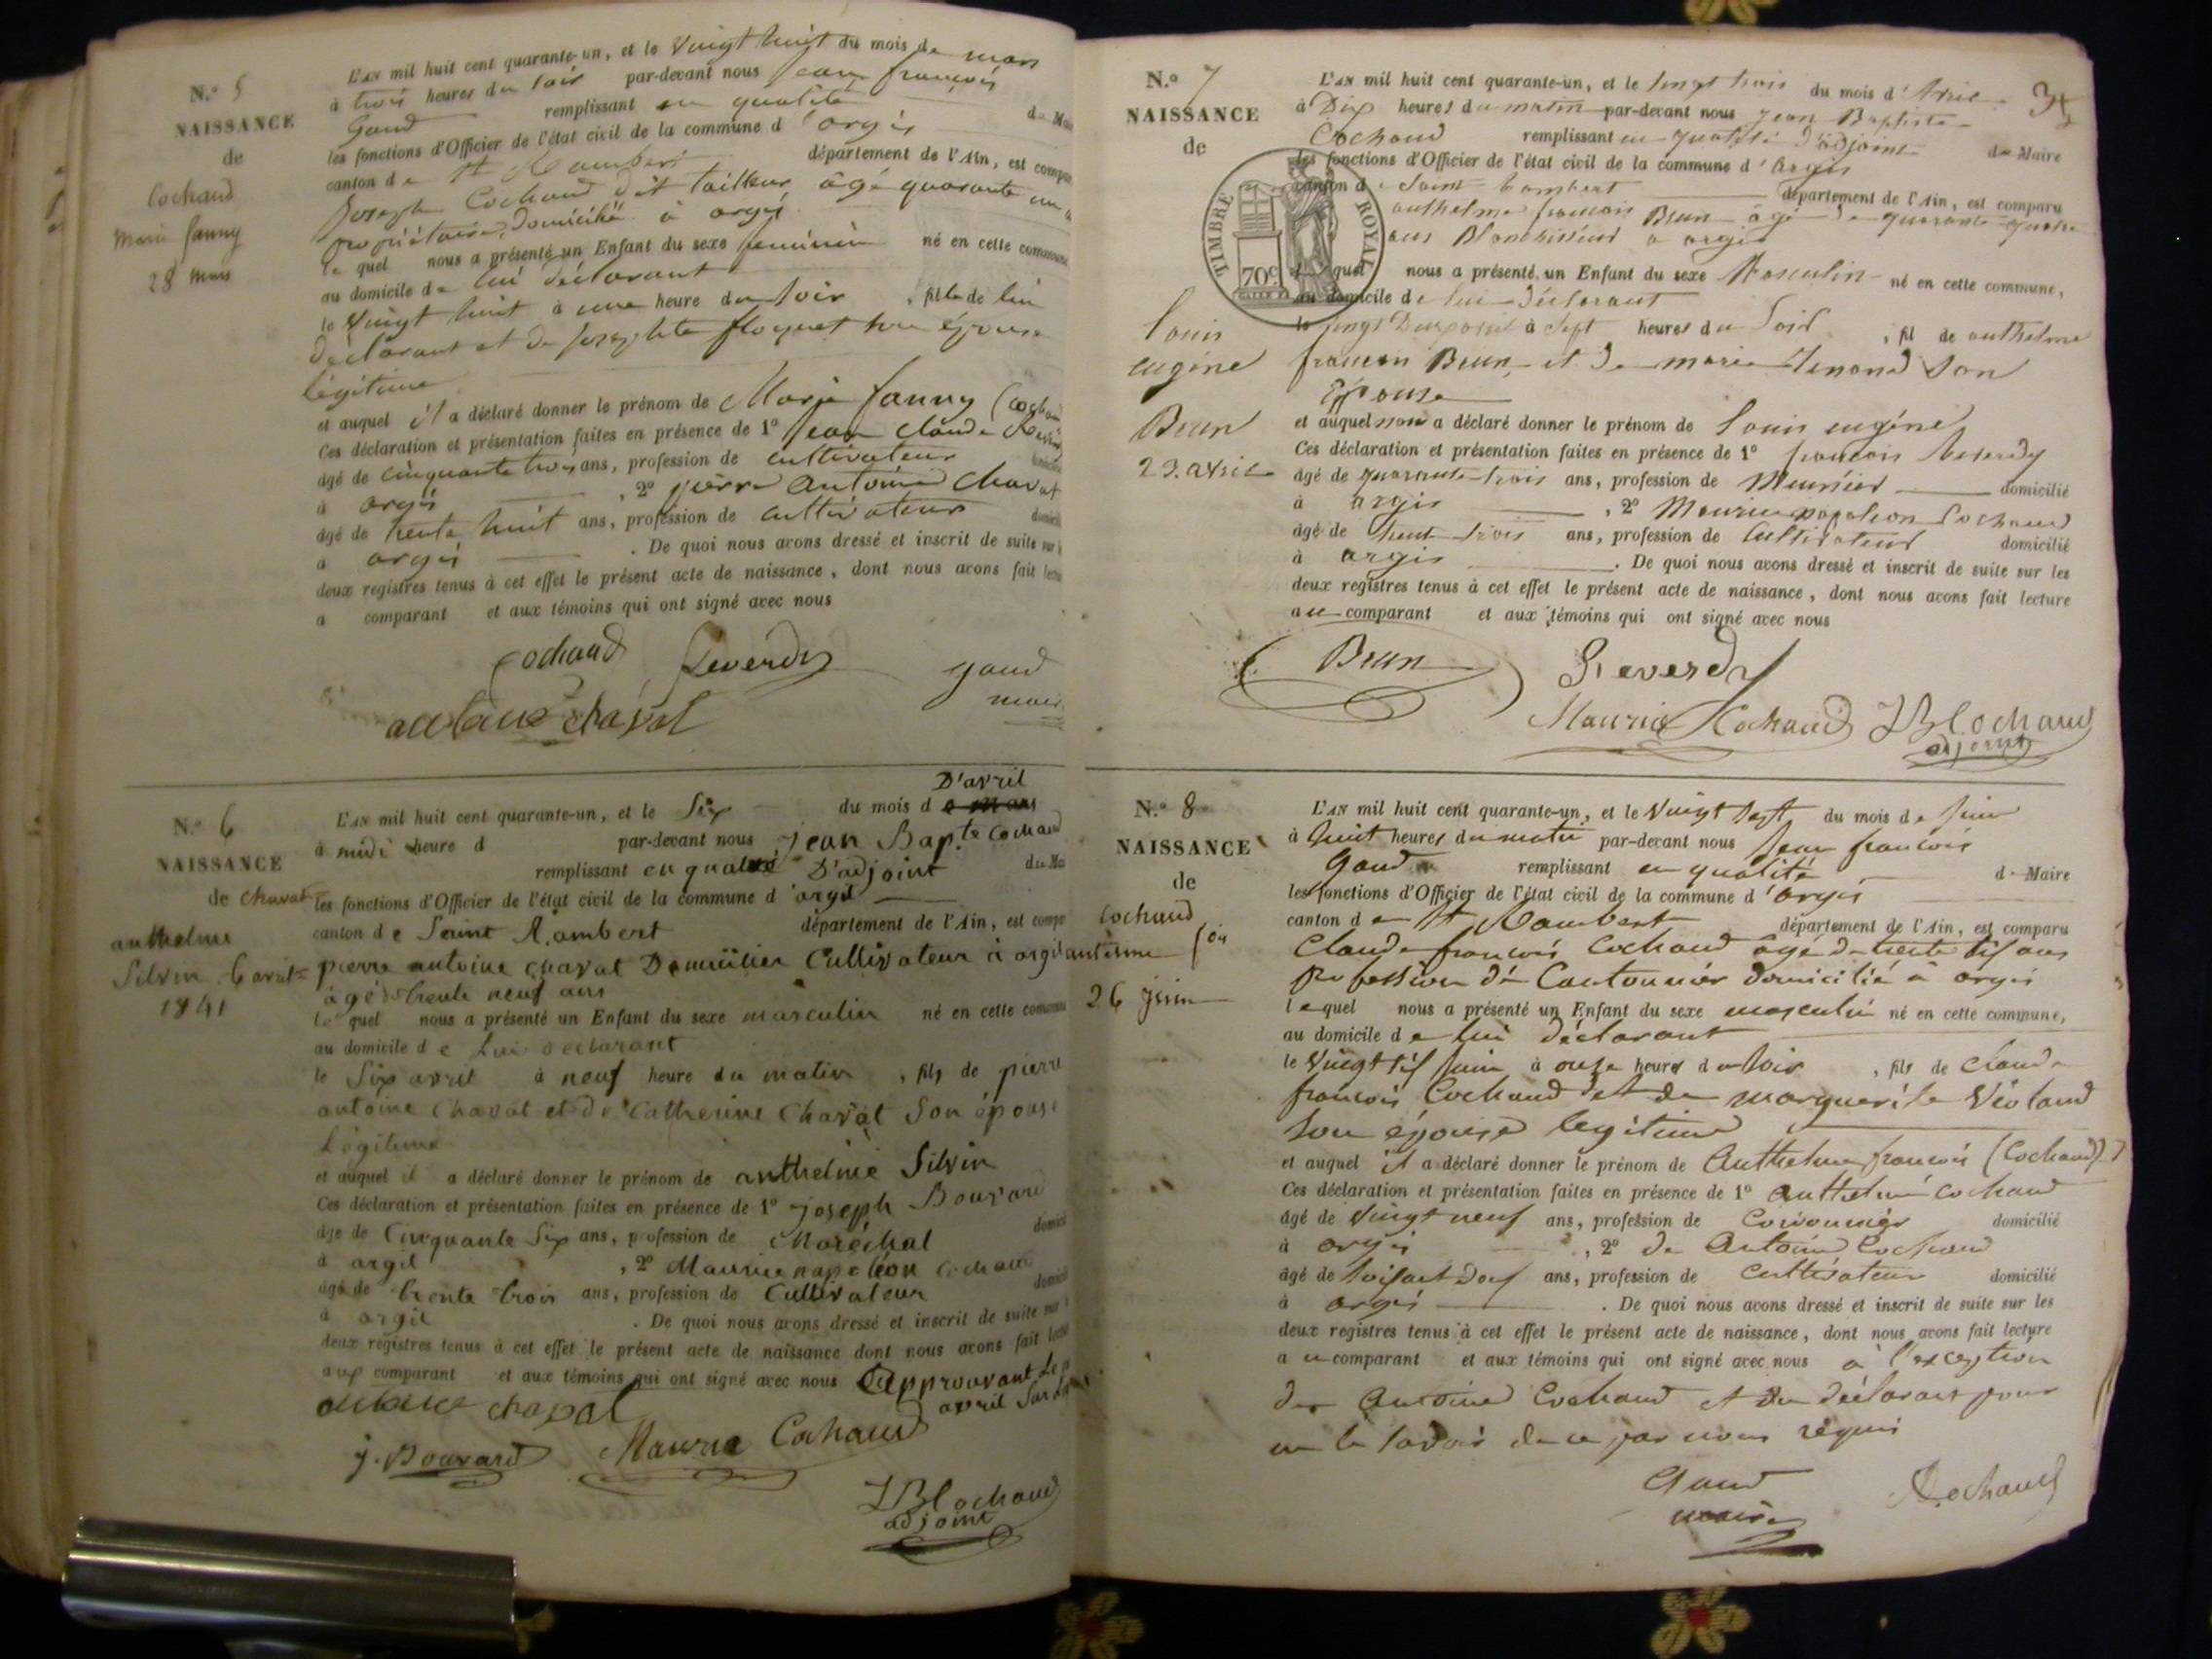 N.º 5
NAISSANCE
de
Cochaud
Marie fanny
28 mars
L'AN mil huit cent quarante-un, et le Vingt huit du mois de mars
à trois heures du soir par-devant nous jean françois
Gaud remplissant en qualité de
les fonctions d'Officier de l'état civil de la commune d'argis
canton de St Rambert département de l'Ain, est
Joseph Cochaud dit tailleur âgé quarante un
propriétaire, Domicilié à argis
le quel nous a présenté un Enfant du sexe feminin né en cette
au domicile de lui déclarant
le Vingt huit à une heure du soir, fille de lui
déclarant et de josephte floquet son épouse
légitime
et auquel il a déclaré donner le prénom de Marie fanny
Ces déclaration et présentation faites en présence de 1º jean claude
âgé de cinquante trois ans, profession de cultivateur
à argis, 2º pierre Antoine Chavat
âgé de trente huit ans, profession de cultivateur
à argis. De quoi nous avons dressé et inscrit de suite sur
deux registres tenus à cet effet le présent acte de naissance, dont nous avons fait
a comparant et aux témoins qui ont signé avec nous
Cochaud Reverdy gaud
maire
antoine chavat
N.º 6
NAISSANCE
de chavat
anthelme
Silvin 6 avril
1841
D'avril
L'AN mil huit cent quarante-un, et le Six du mois de mars
à midi heure d par-devant nous jean Bap.te Cochaud
remplissant en qualité D'adjoint du
les fonctions d'Officier de l'état civil de la commune d'argil
canton de Saint Rambert département de l'Ain, est
pierre antoine chavat Domicilier Cultivateur à argil
âgé trente neuf ans
Le quel nous a présenté un Enfant du sexe masculin né en cette
au domicile de Lui déclarant
le Six avril à neuf heure du matin, fils de pierre
antoine Chavat et de Catherine Chavat Son épouse
Légitime
et auquel il a déclaré donner le prénom de anthelme Silvin
Ces déclaration et présentation faites en présence de 1º joseph Bouvard
âge de Cinquante Six ans, profession de Maréchal
à argil, 2º Maurice napoléon Cochaud
âgé de trente trois ans, profession de Cultivateur
à argil. De quoi nous avons dressé et inscrit de suite sur
deux registres tenus à cet effet le présent acte de naissance dont nous avons fait
aux comparant et aux témoins qui ont signé avec nous Approuvant Le
avril Sur
antoine chavat
j. Bouvard Maurice Cochaud
JB Cochaud
adjoint
N.º 7
NAISSANCE
de
Louis
eugène
Brun
23. avril
TIMBRE ROYAL
70c
L'AN mil huit cent quarante-un, et le vingt trois du mois d'Avril
à Dix heures du matin par-devant nous jean Baptiste
Cochaud remplissant en qualité d'adjoint de Maire
les fonctions d'Officier de l'état civil de la commune d'argis
canton de Saint rambert département de l'Ain, est comparu
anthelme françois Brun âgé de quarante quatre
ans Blanchisseur a argis
quel nous a présenté un Enfant du sexe Masculin né en cette commune,
au domicile de lui déclarant
le à Sept heures du Soir, fil de anthelme
françois Brun et de marie son
Epouse
et auquel nous a déclaré donner le prénom de Louis eugène
Ces déclaration et présentation faites en présence de 1º françois Reverdy
âgé de quarante trois ans, profession de Meunier domicilié
à argis, 2º Maurice napoleon Cochaud
âgé de trente trois ans, profession de Cultivateur domicilié
à argis. De quoi nous avons dressé et inscrit de suite sur les
deux registres tenus à cet effet le présent acte de naissance, dont nous avons fait lecture
au comparant et aux témoins qui ont signé avec nous
Brun Reverdy
Maurice Cochaud JB Cochaud
adjoint
N.º 8
NAISSANCE
de
Cochaud
26 juin
L'AN mil huit cent quarante-un, et le Vingt Sept du mois de juin
à huit heures du matin par-devant nous jean françois
Gaud remplissant en qualité de Maire
les fonctions d'Officier de l'état civil de la commune d'argis
canton de St Rambert département de l'Ain, est comparu
Claude françois Cochaud âgé de trente six ans
profession de Cantonnier domicilié à argis
lequel nous a présenté un Enfant du sexe masculin né en cette commune,
au domicile de lui déclarant
le Vingt six juin à onze heures du soir, fils de claude
françois Cochaud et de marguerite Véoland
son épouse légitime
et auquel il a déclaré donner le prénom de Anthelme françois (Cochaud)
Ces déclaration et présentation faites en présence de 1º Anthelme Cochaud
âgé de Vingt neuf ans, profession de domicilié
à argis, 2º de Antoine Cochaud
âgé de ans, profession de cultivateur domicilié
à argis. De quoi nous avons dressé et inscrit de suite sur les
deux registres tenus à cet effet le présent acte de naissance, dont nous avons fait lecture
au comparant et aux témoins qui ont signé avec nous à l'exception
de Antoine Cochaud et du déclarant pour
ne le savoir de ce par nous requis
Gaud Cochaud
maire